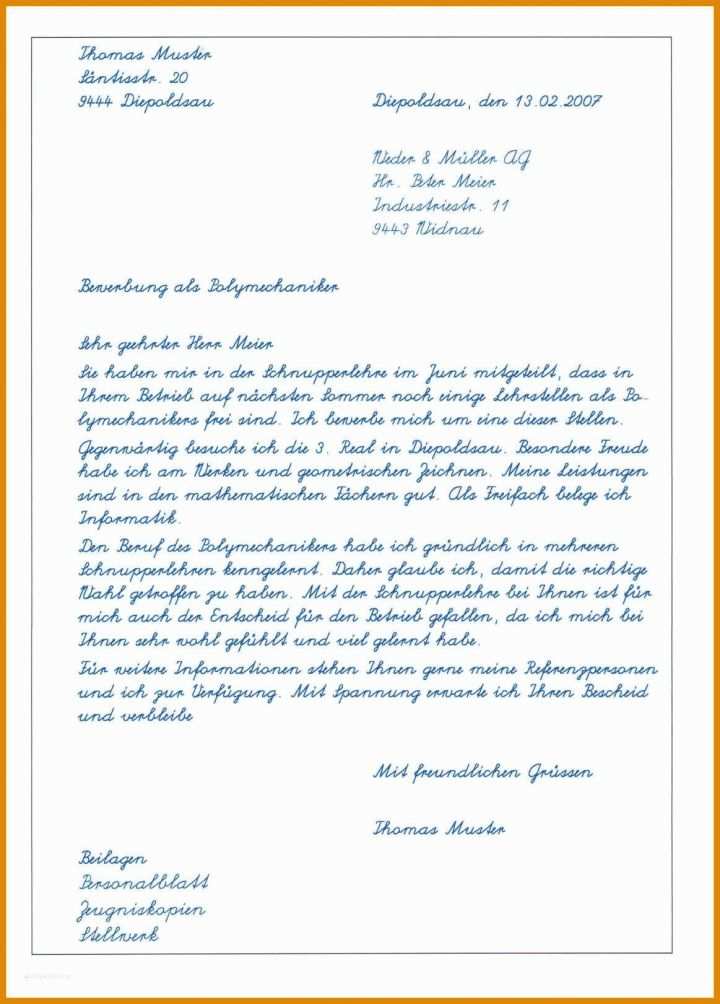 Thomas Muster
Säntisstr. 20
9444 Diepoldsau
Diepoldsau, den 13.02.2007
Weder & Müller AG
Hr. Peter Meier
Industriestr. 11
9443 Widnau
Bewerbung als Polymechaniker
Sehr geehrter Herr Meier
Sie haben mir in der Schnupperlehre im Juni mitgeteilt, dass in
Ihrem Betrieb auf nächsten Sommer noch einige Lehrstellen als Po-
lymechanikers frei sind. Ich bewerbe mich um eine dieser Stellen.
Gegenwärtig besuche ich die 3. Real in Diepoldsau. Besondere Freude
habe ich am Werken und geometrischen Zeichnen. Meine Leistungen
sind in den mathematischen Fächern gut. Als Freifach belege ich
Informatik.
Den Beruf des Polymechanikers habe ich gründlich in mehreren
Schnupperlehren kenngelernt. Daher glaube ich, damit die richtige
Wahl getroffen zu haben. Mit der Schnupperlehre bei Ihnen ist für
mich auch der Entscheid für den Betrieb gefallen, da ich mich bei
Ihnen sehr wohl gefühlt und viel gelernt habe.
Für weitere Informationen stehen Ihnen gerne meine Referenzpersonen
und ich zur Verfügung. Mit Spannung erwarte ich Ihren Bescheid
und verbleibe
Mit freundlichen Grüssen
Thomas Muster
Beilagen
Personalblatt
Zeugniskopien
Stellwerk